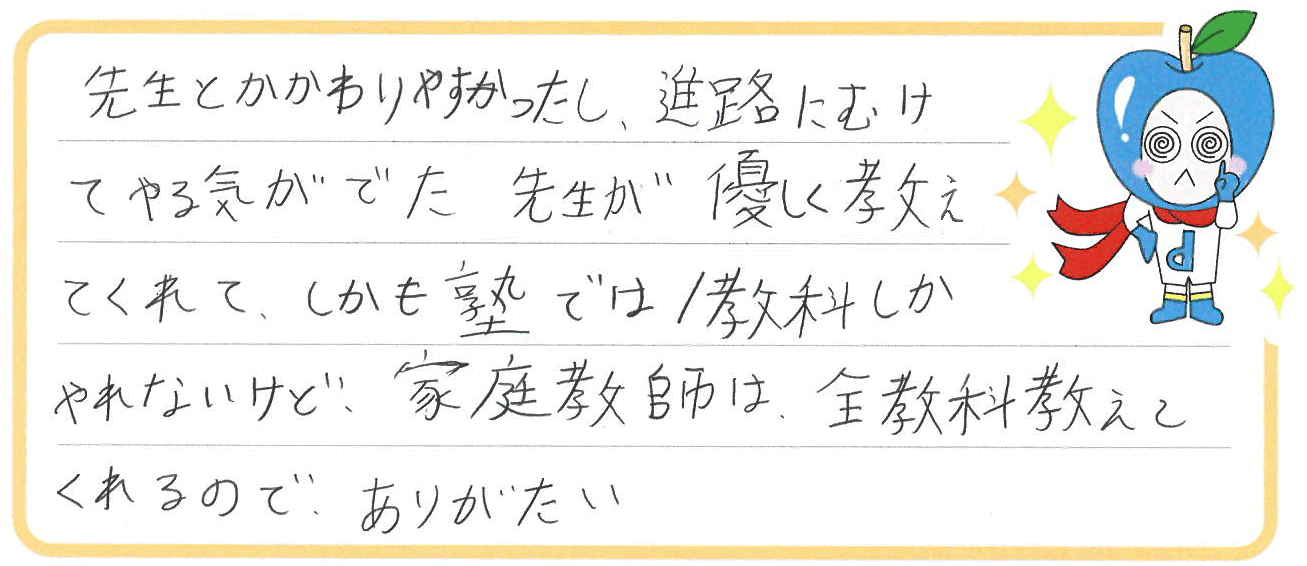 先生とかかわりやすかったし、進路にむけ
てやる気がでた 先生が優しく教え
てくれて、しかも塾では1教科しか
やれないけど、家庭教師は、全教科教えて
くれるので、ありがたい